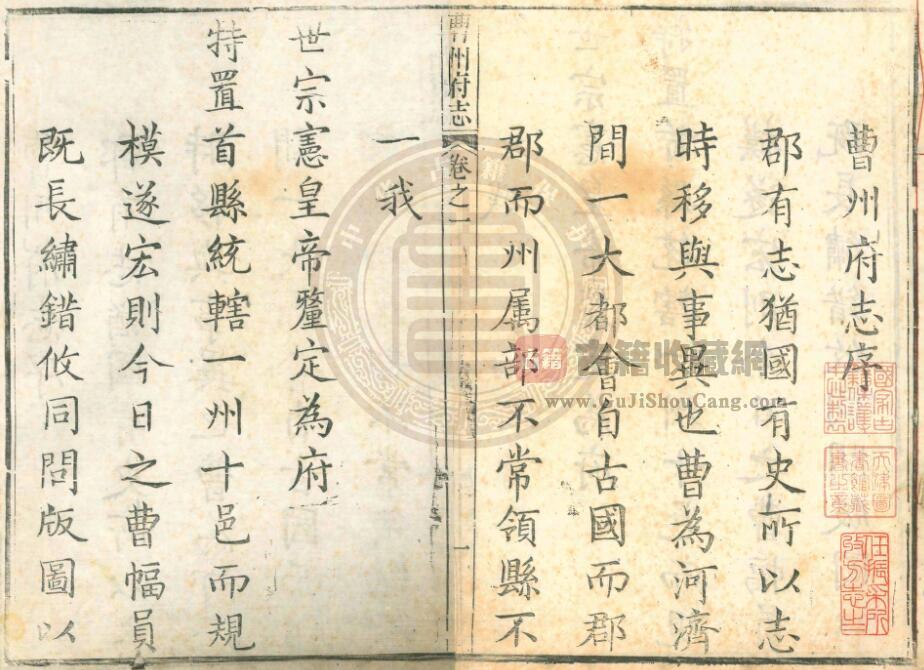 曹州府志序
郡有志猶國有史所以志
時移與事異也曹為河濟
間一大都會自古國而郡
郡而州属部不常領縣不
曹州府志
卷之一
一
一我
世宗憲皇帝釐定為府
特置首縣統轄一州十邑而規
模遂宏則今日之曹幅員
既長繡錯攸同問版圖以
古籍收藏網
www.GuJiShouCang.com
任振采所收方志